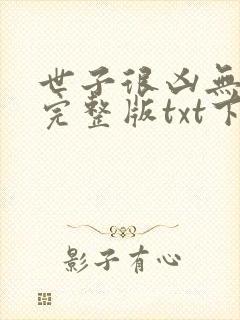 世子很凶無
完整版txt下
影子有心